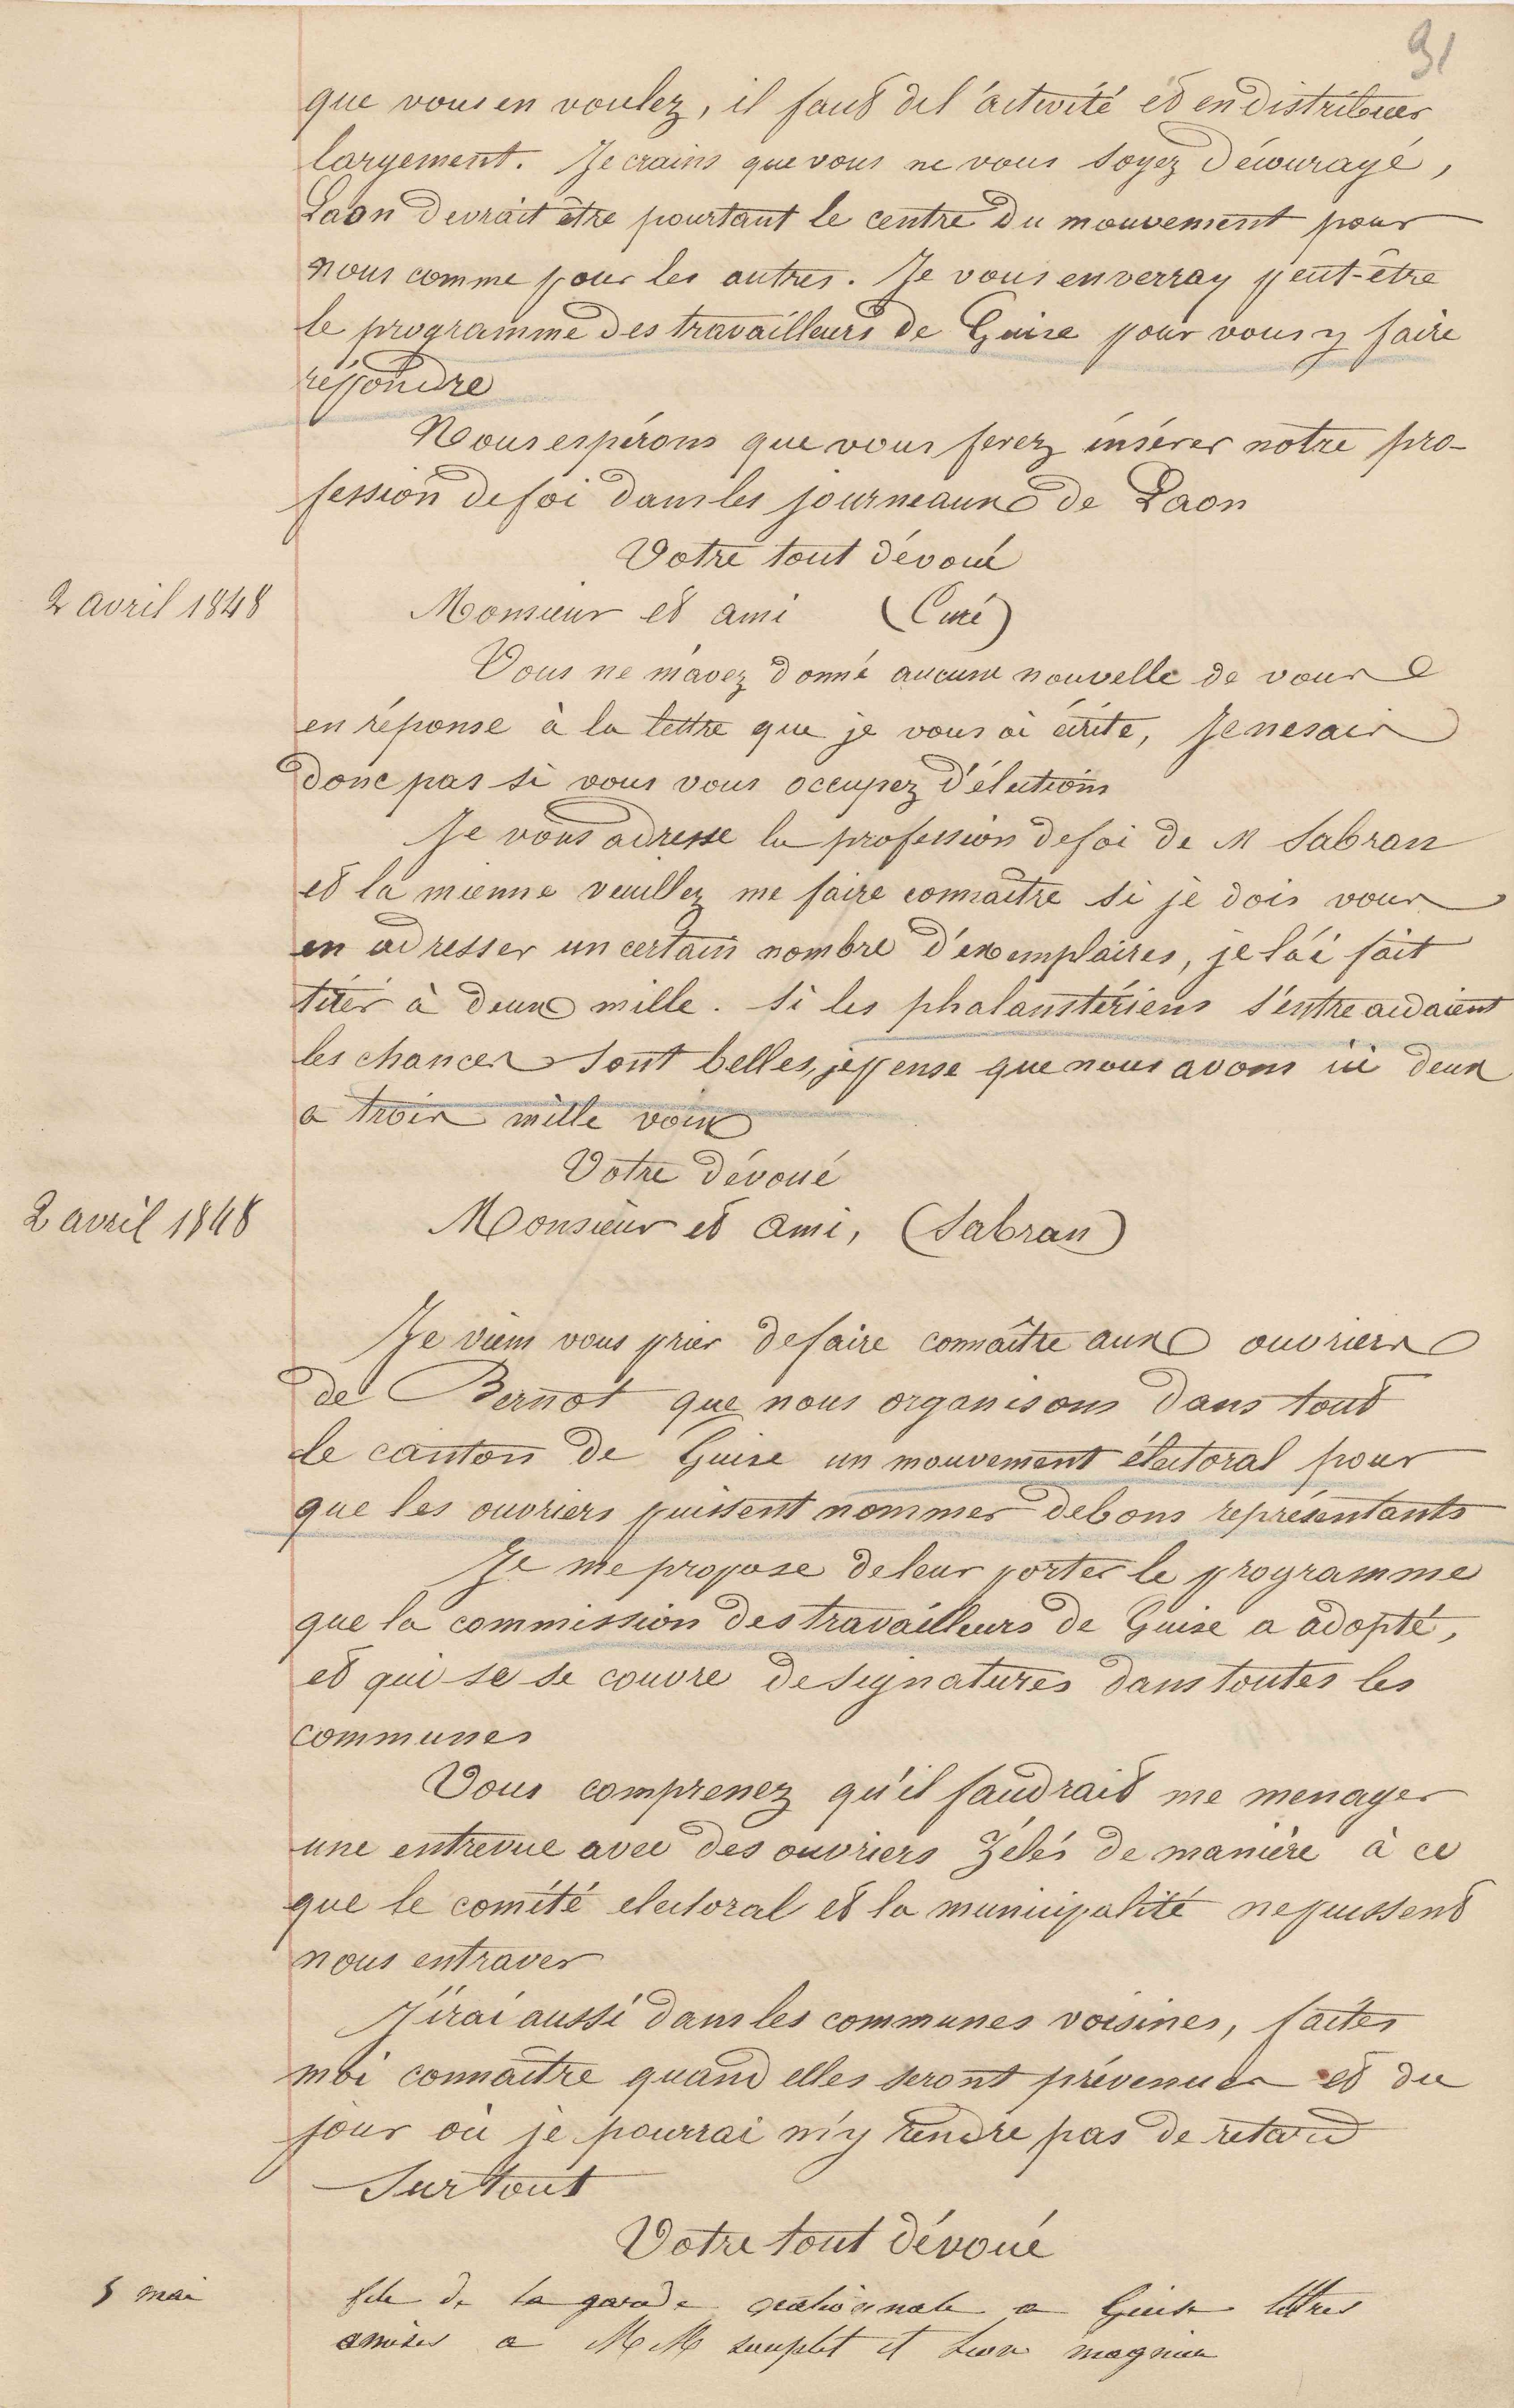 31
que vous en voulez, il faut del'activité et en distribuer
largement. Je crains que vous ne vous soyez découragé,
Laon devrait être pourtant le centre du mouvement pour
nous comme pour les autres. Je vous enverray peut-être
le programme des travailleurs de Guise pour vous y faire
répondre
Nous espérons que vous ferez insérer notre pro-
fession de foi dans les journeaux de Laon
Votre tout dévoué
2 avril 1848
Monsieur et ami (Curé)
Vous ne m'avez donné aucune nouvelle de vous
en réponse à la lettre que je vous ai écrite, Je ne sais
donc pas si vous vous occupez d'élections
Je vous adresse la profession de foi de M Sabran
et la mienne veuillez me faire connaître si je dois vous
en adresser un certain nombre d'exemplaires, je l'ai fait
tirer à deux mille. Si les phalanstériens s'entre aidaient
les chances sont belles, je pense que nous avons ici deux
a trois mille voix
Votre dévoué
2 avril 1848
Monsieur et ami, (Sabran)
Je viens vous prier de faire connaître aux ouvriers
de Bernot que nous organisons dans tout
le canton de Guise un mouvement électoral pour
que les ouvriers puissent nommer de bons représentants
Je me propose de leur porter le programme
que la commission des travailleurs de Guise a adopté,
et qui se se couvre de signatures dans toutes les
communes
Vous comprenez qu'il faudrait me menager
une entrevue avec des ouvriers zélés de manière à ce
que le comité electoral et la municipalité ne puissent
nous entraver
J'irai aussi dans les communes voisines, faites
moi connaître quand elles seront prévenues et du
jour où je pourrai m'y rendre pas de retard
Surtout
Votre tout dévoué
5 mai
fete de la garde nationale a Guise lettres
a MM souplet et Leon magnier